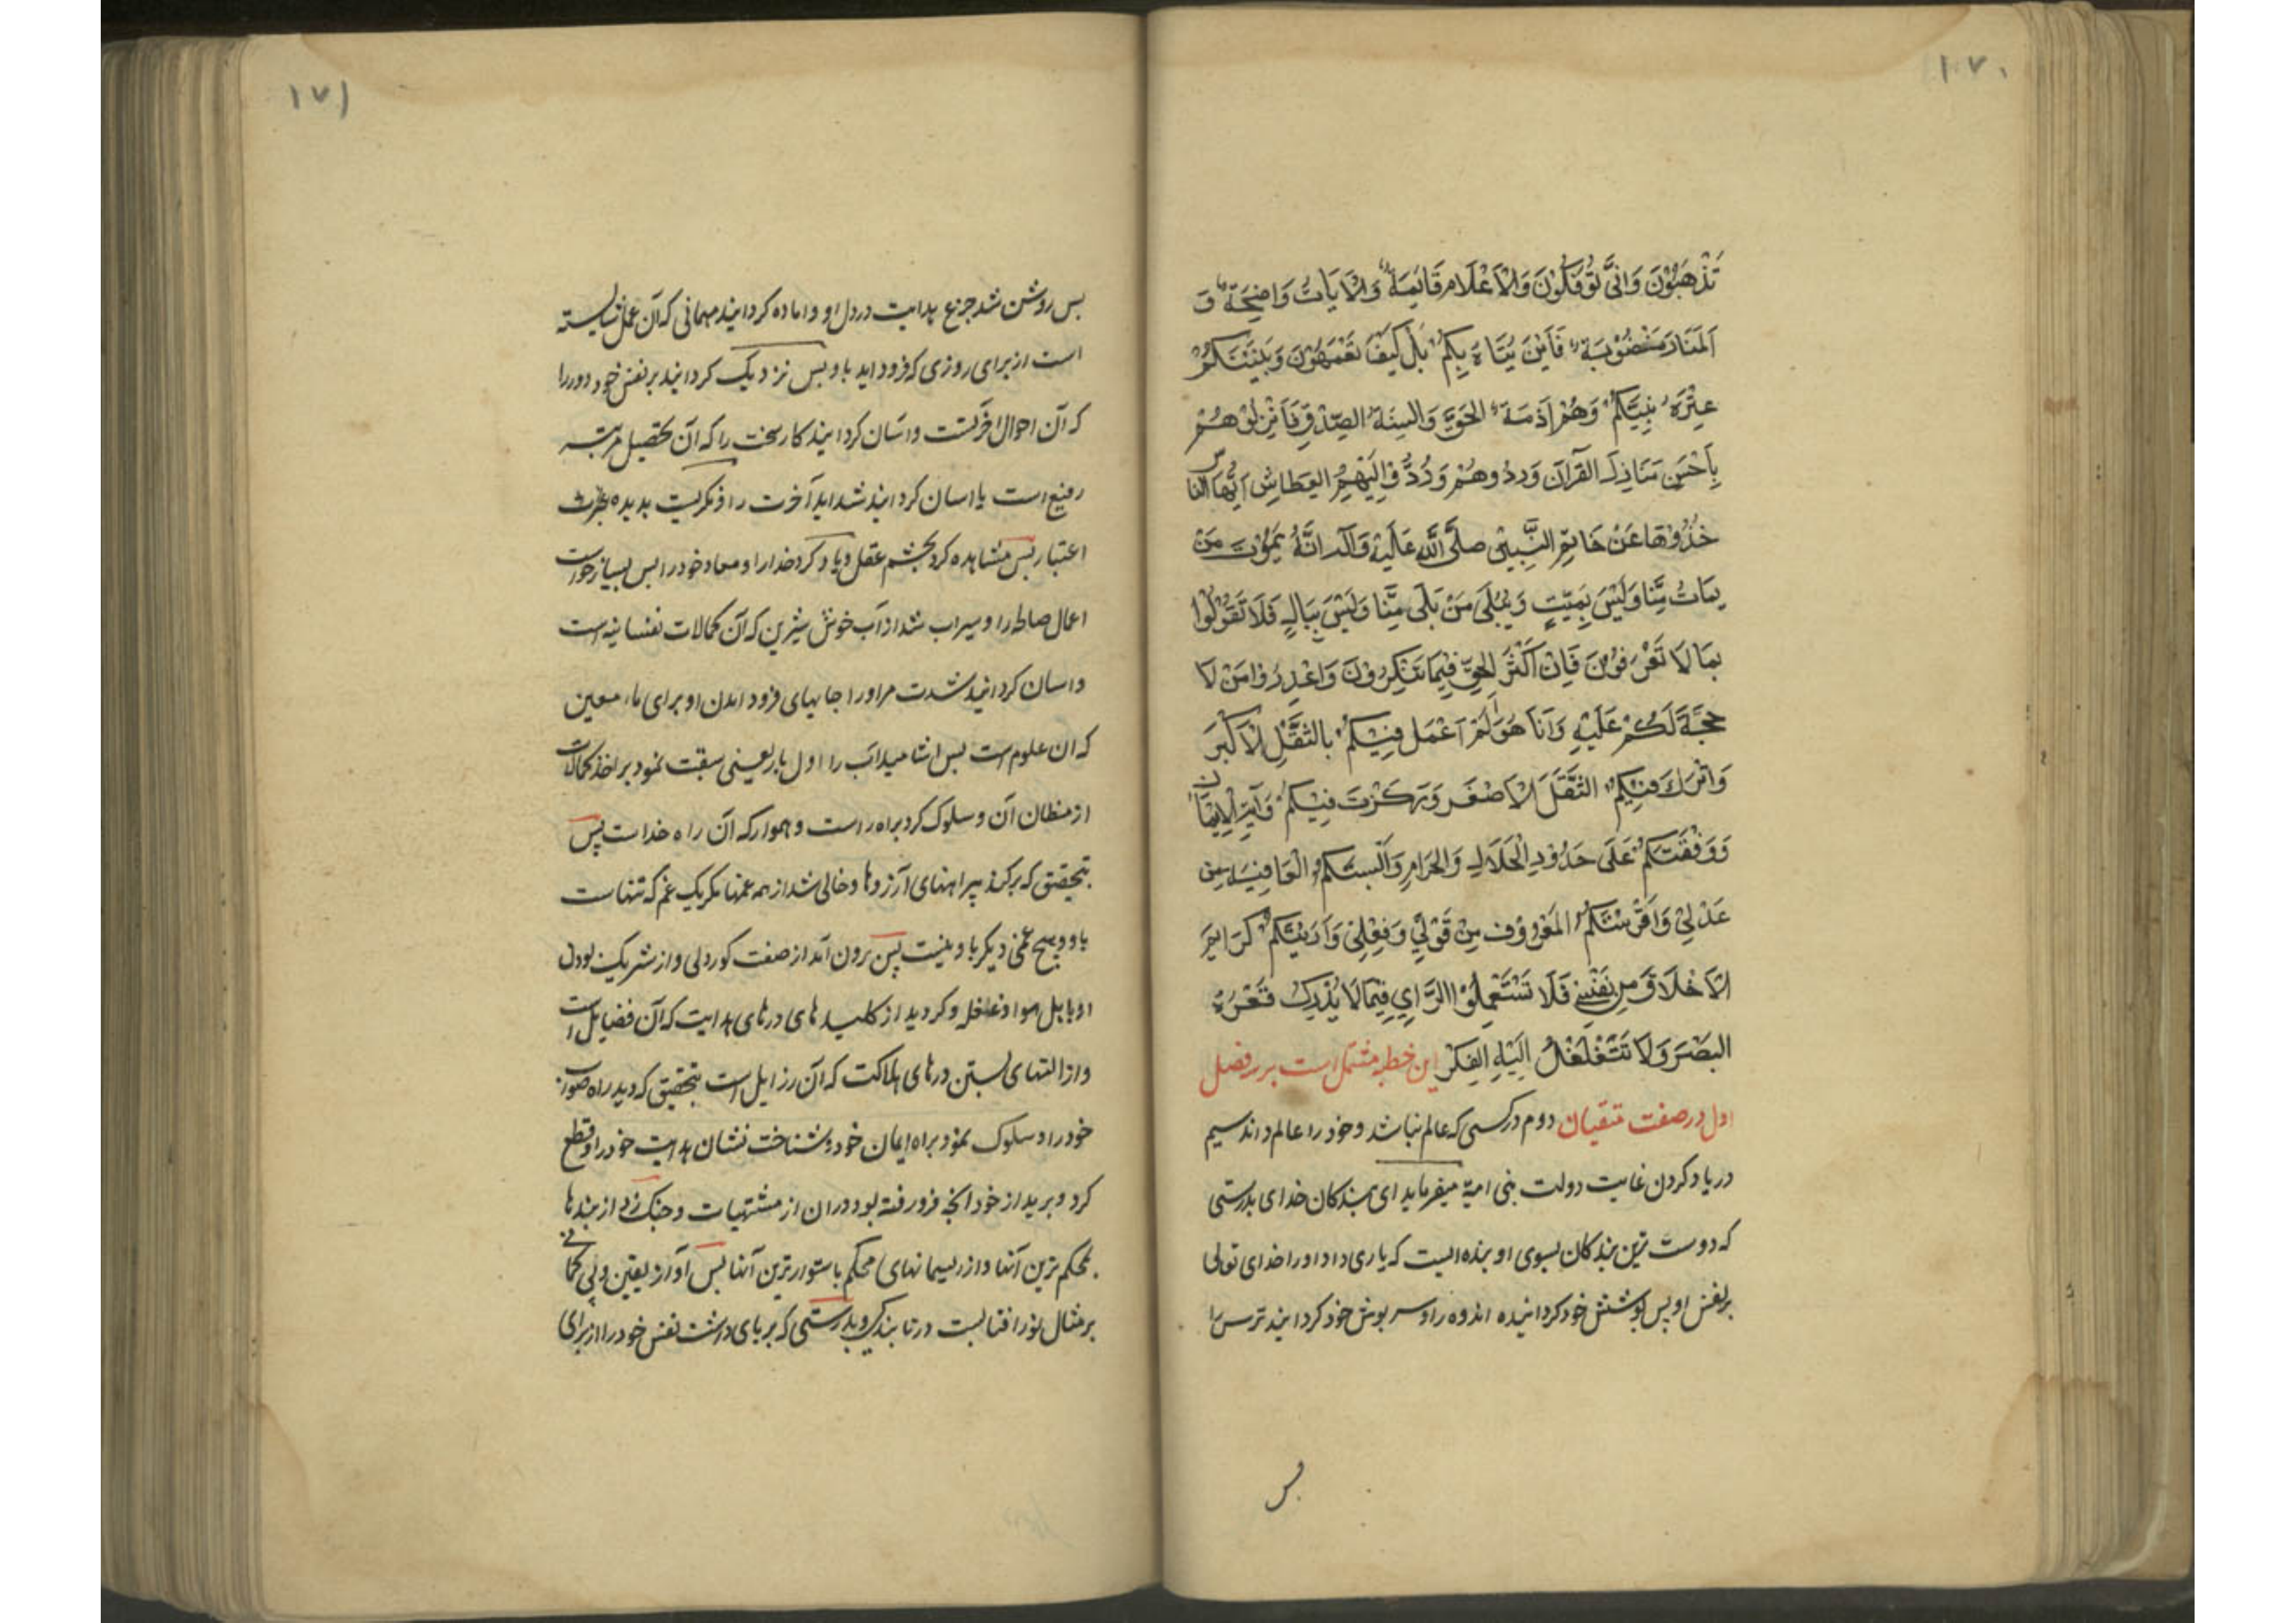 ١٧٠
تَذْهَبُوْنَ وَاَنّٰی تُؤْفَكُوْنَ وَالْاَعْلَام قَائِمَةٌ وَالْاٰیَاتُ وَاضِحَةٌ وَ
اَلْمَنَارُ مَنْصُوْبَة فَاَیْنَ یُتَاهُ بِكُمْ بَلْ كَیْفَ تَعْمَهُوْنَ وَبَیْنَكُمْ
عِتْرَةُ نَبِیِّكُمْ وَهُمْ اَزِمَّةُ الْحَقِّ وَالسِنَةُ الصِّدْقِ فَاَنْزِلُوْهُمْ
بِاَحْسَنِ مَنَازِلِ القُرآنِ وَرِدُوهُمْ وُرُوْدَ الْهِیْمِ العِطَاشِ اَیُّهَا النَّاس
خُذُوْهَا عَنْ خَاتِمِ النَّبِیّیْنَ صلَّی اللّٰه عَلَیْهِ وَآلِه اِنَّهُ یَمُوْتُ مَنْ
مَاتَ مِنَّا وَلَیْسَ بِمَیِّتٍ وَیُبْلٰی مَنْ بَلٰی مِنَّا وَلَیْسَ بِبَالٍ فَلَا تَقُوْلُوْا
بِمَا لَا تَعْرِفُوْنَ فَاِنَّ اَكْثَرَ الْحَقِّ فِیْمَا تُنْكِرُوْنَ وَاعْذِرُوْا مَنْ لَا
حُجَّةَ لَكُمْ عَلَیْهِ وَاَنَا هُوَ اَلَمْ اَعْمَل فِیْكُمْ بالثَّقَلِ الْاَكْبَرِ
وَاَتْرُكَ فِیْكُمُ الثَّقَلَ الْاَصْغَرَ وَرَكَزْتُ فِیْكُمْ رَایَةَ الْاِیْمَان
وَوَقَفْتُكُمْ عَلٰی حُدُوْدِ الْحَلَالِ وَالحَرَامِ وَاَلْبَسْتُكُمُ الْعَافِیَةَ مِن
عَدْلِیْ وَافَرَشْتُكُمُ المَعْرُوْف مِنْ قَوْلِیْ وَفِعْلِیْ وَاَرَیْتُكُمْ كَرَائِمَ
الْاَخْلَاقِ مِن نَفْسِیْ فَلَا تَسْتَعْمِلُوْا الرَّایَ فِیْمَا لَا یُدْرِكُ قَعْرَهُ
البَصَرُ وَلَا تَتَغَلْغَلُ اِلَیْهِ الفِكَرُ این خطبه مشتمل است بر سه فصل
اول در صفت متقیان دوم در كسی كه عالم نباشد وخود را عالم داند سیم
در یاد كردن غایت دولت بنی امیه میفرماید ای بندكان خدای بدرستی
كه دوست ترین بندكان بسوی او بنده ایست كه یاری داد او را خدای تعالی
بر نفس او پس پوشش خود كردانیده اندوه را وسر پوش خود كردانید ترس را
بس
١٧١
بس روشن شد چراغ هدایت در دل او واماده كردانید مهمانی كه آن عمل شایسته
است از برای روزی كه فرود اید باو بس نزدیك كردانید بر نفس خود دور را
كه آن احوال اخرتست واسان كردانید كار سخت را كه آن تحصیل مرتبه
رفیع است یا اسان كردانید شداید آخرت را ونكریست بدیده عبرت
اعتبار بس مشاهده كرد بچشم عقل ویاد كرد خدا را ومعاد خود را بس بسیار خواست
اعمال صالحه را وسیراب شد از آب خوش شیرین كه آن كمالات نفسانیه است
واسان كردانیده شدت مر او را جایهای فرود امدن او برای ماء معین
كه ان علوم است بس اشامید آب را اول بار یعنی سبقت نمود بر اخذ كمالات
از مظان آن وسلوك كرد براه راست وهموار كه آن راه خداست پس
بتحقیق كه بركند پیراهنهای آرزوها وخالی شد از همه غمها مكر یك غم كه تنهاست
باو وهیچ غمی دیكر با او نیست پس برون آمد از صفت كور دلی واز شریك بودن
او با اهل هوا وغافل وكردید از كلیدهای درهای هدایت كه آن فضایل است
واز التهای بستن درهای هلاكت كه آن رذایل است بتحقیق كه دید راه صواب
خود را وسلوك نمود براه ایمان خود وشناخت نشان هدایت خود را وقطع
كرد وبرید از خود انچه فرو رفته بود در ان از مشتهیات وچنك زد از بندها
بمحكم ترین آنها واز ریسمانهای محكم باستوارترین آنها بس او از یقین وبی كمانی
بر مثال نور افتابست در تابندكی وبدرستی كه بر پای داشت نفس خود را از برای